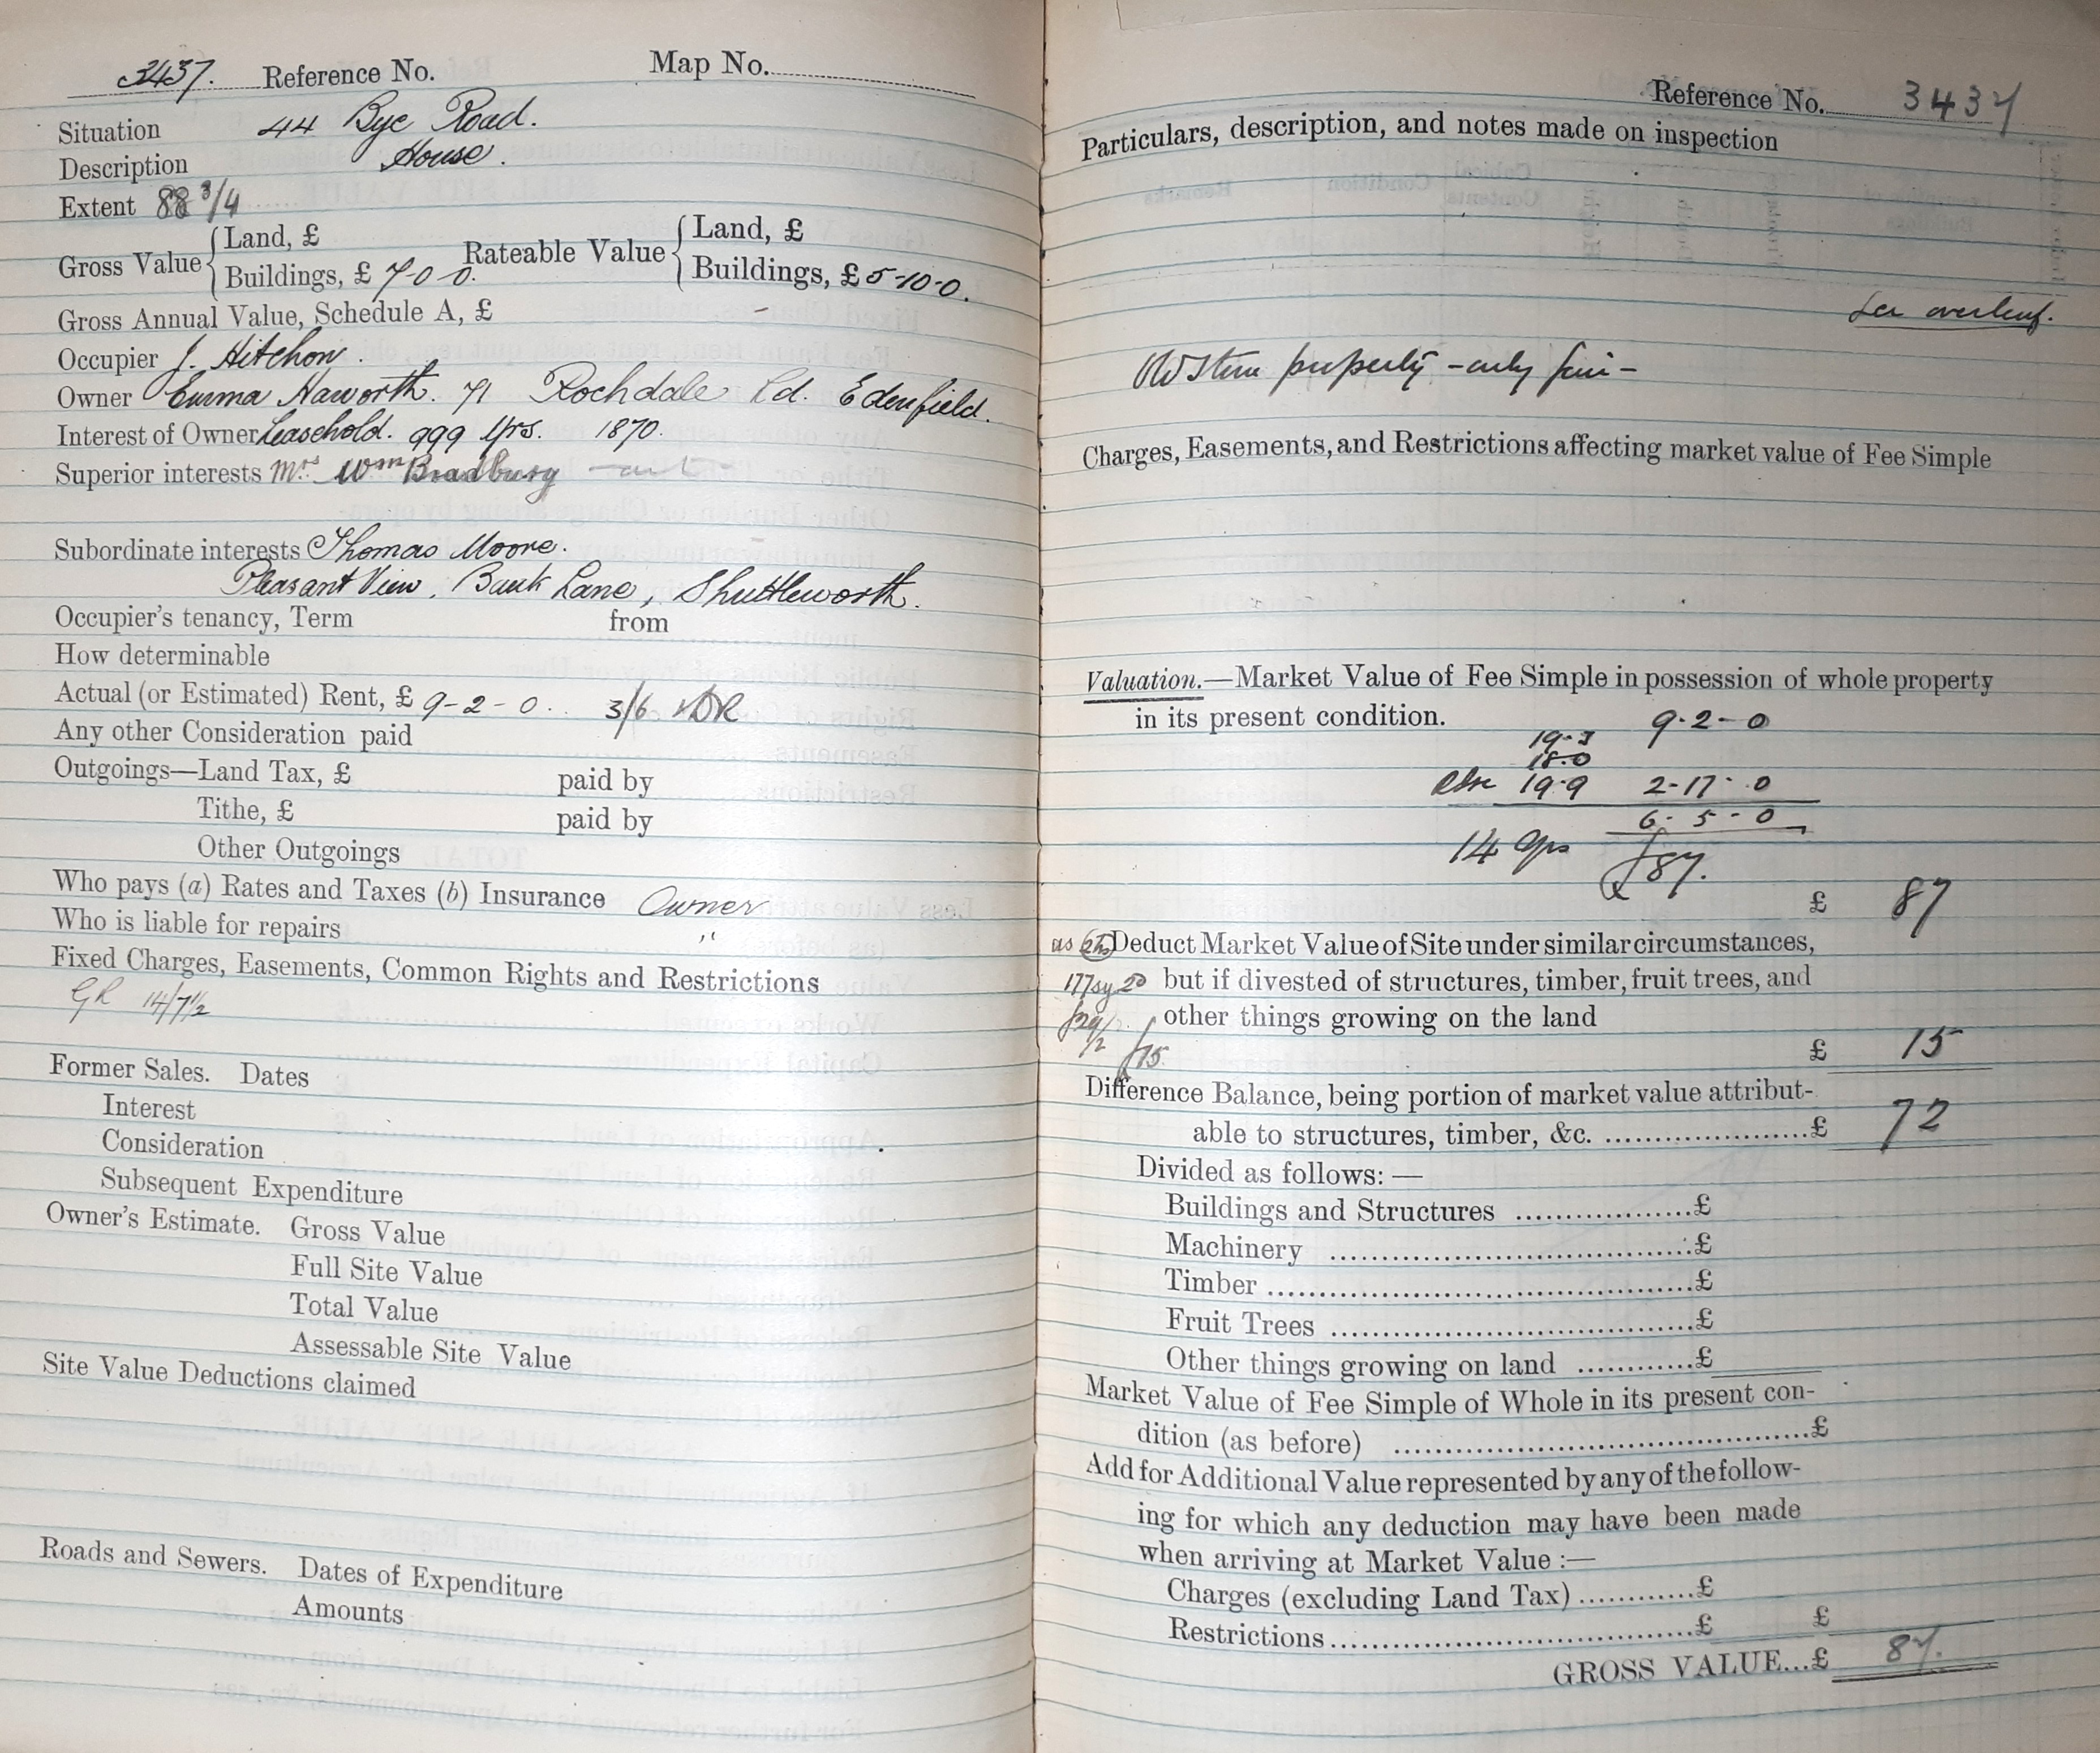 3437. Reference No. Map No.
Situation 44 Bye Road.
Description House.
Extent 88 3/4
Gross Value { Land, £
Buildings, £ 7-0-0. Rateable Value { Land, £
Buildings, £ 5-10-0.
Gross Annual Value, Schedule A, £ -
Occupier J. Hitchon.
Owner Emma Haworth. 71 Rochdale Rd. Edenfield.
Interest of Owner Leasehold. 999 Yrs. 1870.
Superior interests Mrs Wm Bradbury
Subordinate interests Thomas Moore.
Pleasant View, Bank Lane, Shuttleworth.
Occupier's tenancy, Term from
How determinable
Actual (or Estimated) Rent, £ 9-2-0. 3/6 DR
Any other Consideration paid
Outgoings—Land Tax, £ paid by
Tithe, £ paid by
Other Outgoings
Who pays (a) Rates and Taxes (b) Insurance Owner
Who is liable for repairs "
Fixed Charges, Easements, Common Rights and Restrictions
GR 14/7½
Former Sales. Dates
Interest
Consideration
Subsequent Expenditure
Owner's Estimate. Gross Value
Full Site Value
Total Value
Assessable Site Value
Site Value Deductions claimed
Roads and Sewers. Dates of Expenditure
Amounts
Reference No. 3437
Particulars, description, and notes made on inspection
See overleaf.
Old Stone property - only fair -
Charges, Easements, and Restrictions affecting market value of Fee Simple
Valuation.—Market Value of Fee Simple in possession of whole property
in its present condition. 9-2-0
19-3
18-0
19-9 2-17-0
6-5-0
14 yrs £87.
£ 87
as Deduct Market Value of Site under similar circumstances,
177 sy but if divested of structures, timber, fruit trees, and
£29/2 other things growing on the land
£15 £ 15
Difference Balance, being portion of market value attribut-
able to structures, timber, &c. £ 72
Divided as follows:—
Buildings and Structures £
Machinery £
Timber £
Fruit Trees £
Other things growing on land £
Market Value of Fee Simple of Whole in its present con-
dition (as before) £
Add for Additional Value represented by any of the follow-
ing for which any deduction may have been made
when arriving at Market Value :—
Charges (excluding Land Tax) £
Restrictions £ £
GROSS VALUE...£ 87.